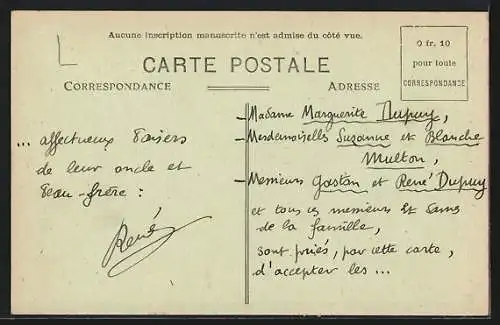 Aucune inscription manuscrite n'est admise du côté vue.
CARTE POSTALE
CORRESPONDANCE
ADRESSE
0 fr. 10
pour toute
CORRESPONDANCE
- Madame Marguerite Dupuy,
- Mesdemoiselles Suzanne et Blanche
Multon,
- Messieurs Gaston et René Dupuy
et tous ces messieurs et dames
de la famille,
sont priés, par cette carte,
d'accepter les ...
... affectueux baisers
de leur oncle et
beau-frère :
René